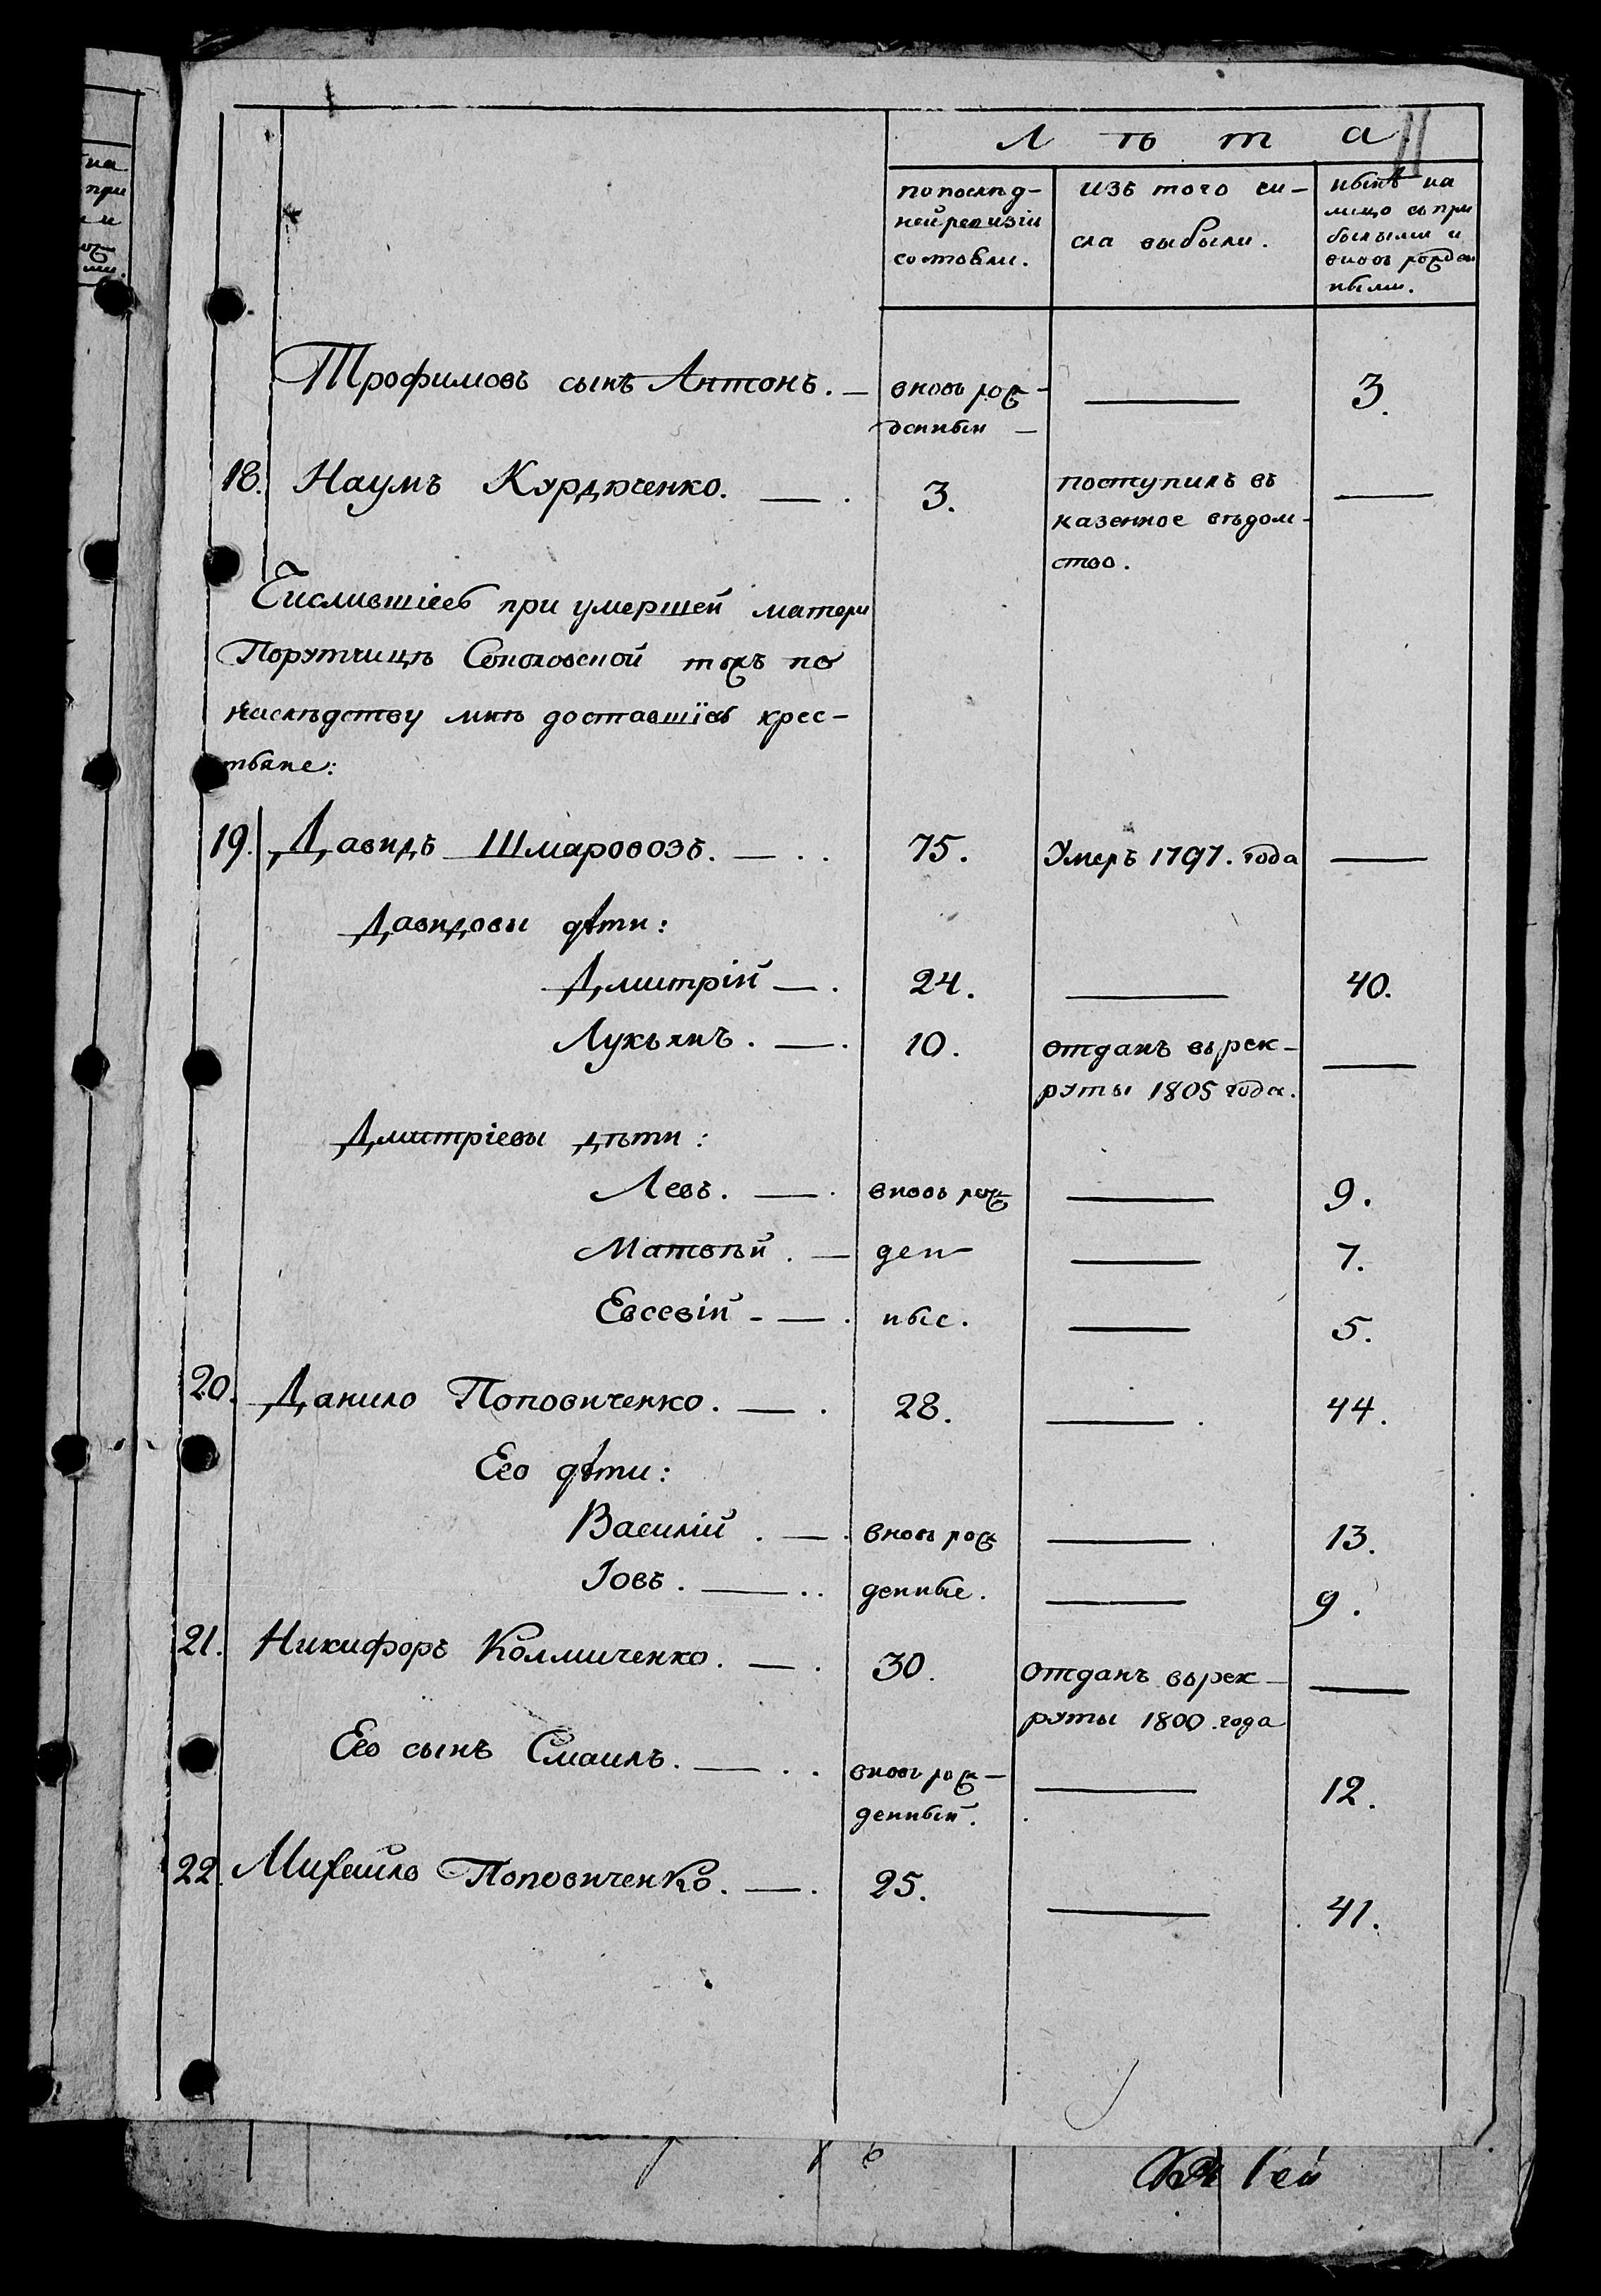 Лѣта
по послѣд-
ней ревизіи
состояли.
изъ того чи-
сла выбыли.
нынѣ на
лицо съ при
былыми и
вновь рожден
ными.
Трофимовъ сынъ Антонъ. — вновь рож- — 3.
денный —
18. Наумъ Курдюченко. — 3. поступилъ въ —
казенное вѣдом-
ство.
Числившіесь при умершей матери
Порутчицѣ Соколовской тожъ по
наслѣдству мнѣ доставшіесь крес-
тьяне:
19. Давидъ Шмаровозъ. — 75. Умеръ 1797. года —
Давидовы дѣти:
Дмитрій — 24. — 40.
Лукьянъ. — 10. отданъ въ рек- —
руты 1805 года.
Дмитріевы дѣти:
Левъ. — вновь рож — 9.
Матвѣй. — ден — 7.
Евсевій - — ные. — 5.
20. Данило Поповиченко. — 28. — 44.
Его дѣти:
Василій. — вновь рож — 13.
Іовъ. — денные. — 9.
21. Никифоръ Колмиченко. — 30. отданъ въ рек- —
руты 1800. года
Его сынъ Смаилъ. — вновь рож- — 12.
денный.
22. Михайло Поповиченко. — 25. — 41.